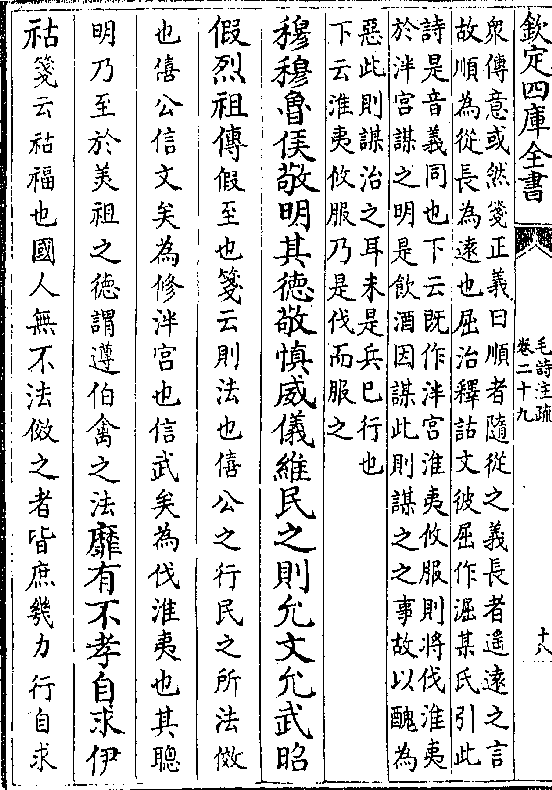 欽定四庫全書
毛詩注疏
卷二十九
十八
衆傳意或然箋正義曰順者隨從之義長者遥遠之言
故順為從長為遠也屈治釋詁文彼屈作淈某氏引此
詩是音義同也下云既作泮宫淮夷攸服則將伐淮夷
於泮宫謀之明是飲酒因謀此則謀之之事故以醜為
惡此則謀治之耳未是兵已行也
下云淮夷攸服乃是伐而服之
穆穆魯侯敬明其德敬慎威儀維民之則允文允武昭
假烈祖傳假至也箋云則法也僖公之行民之所法傚
也僖公信文矣為修泮宫也信武矣為伐淮夷也其聰
明乃至於美祖之德謂遵伯禽之法靡有不孝自求伊
祜箋云祜福也國人無不法傚之者皆庶幾力行自求